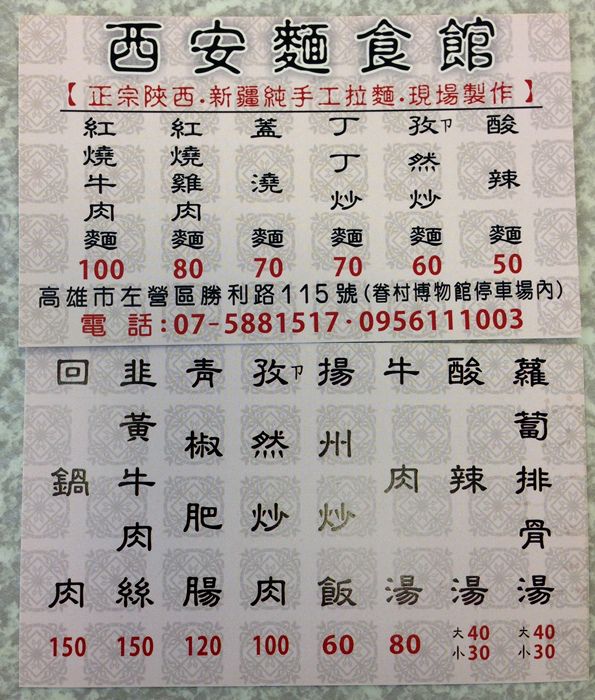 西安麵食館
【正宗陝西.新疆純手工拉麵.現場製作】
紅燒牛肉麵 100
紅燒雞肉麵 80
蓋澆麵 70
丁丁炒麵 70
孜ㄗ然炒麵 60
酸辣麵 50
高雄市左營區勝利路115號(眷村博物館停車場內)
電話:07-5881517·0956111003
回鍋肉 150
韭黃牛肉絲 150
青椒肥腸 120
孜ㄗ然炒肉 100
揚州炒飯 60
牛肉湯 80
酸辣湯 大40 小30
蘿蔔排骨湯 大40 小30